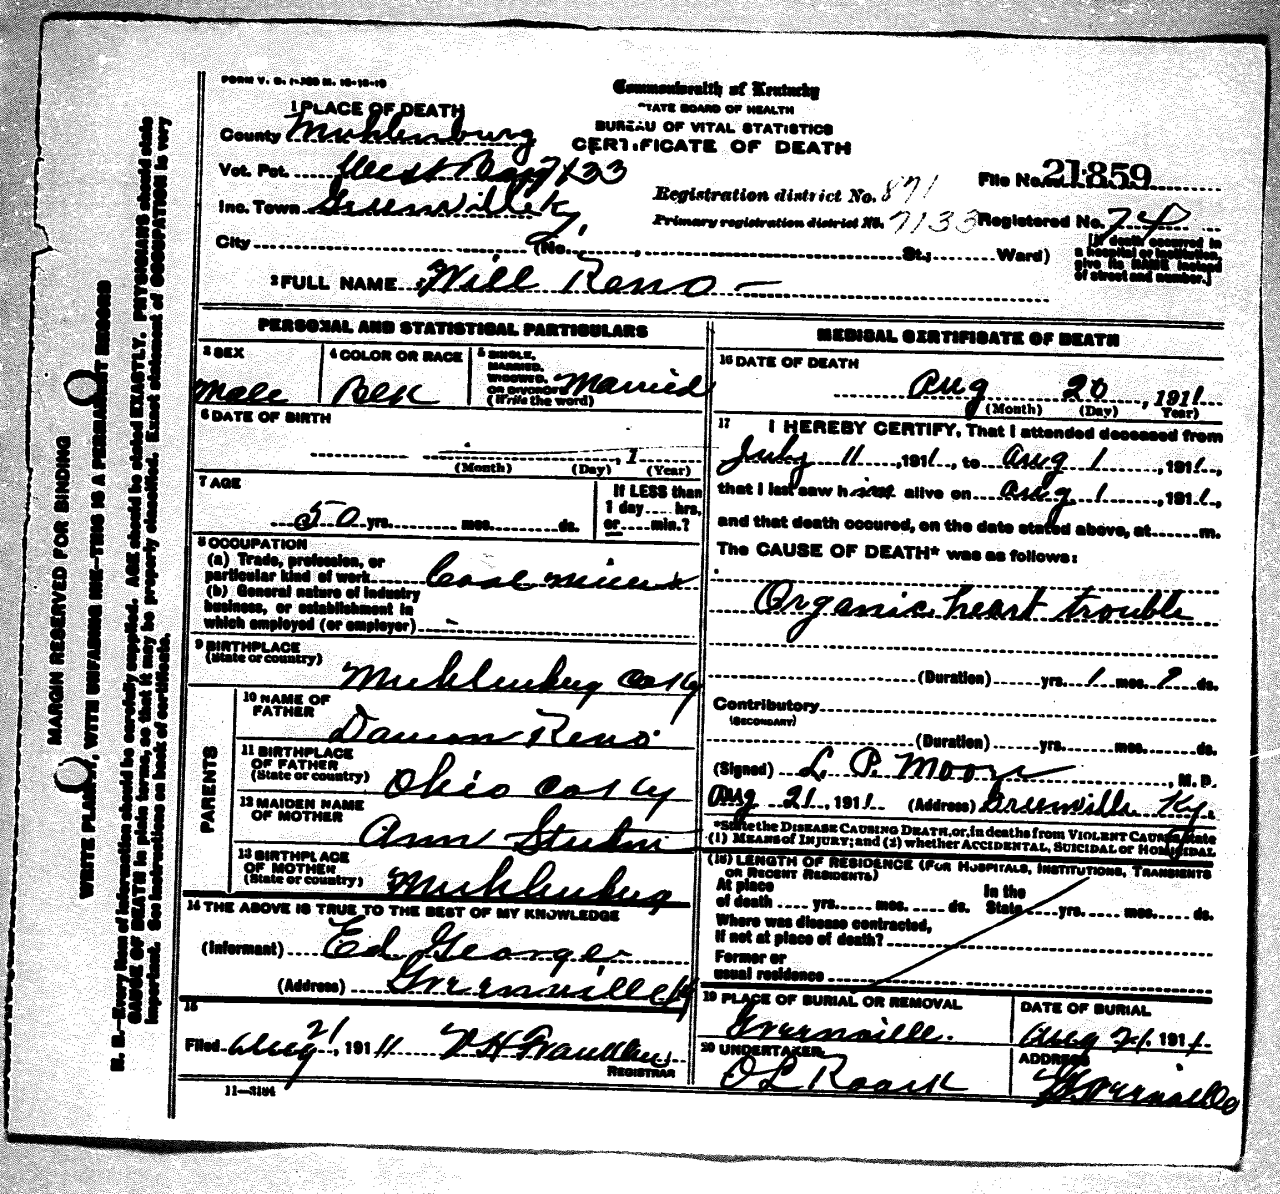 FORM V. S. 1-200 M. 10-10-10
Commonwealth of Kentucky
STATE BOARD OF HEALTH
BUREAU OF VITAL STATISTICS
CERTIFICATE OF DEATH
1 PLACE OF DEATH
County Muhlenburg
Vot. Pct. West 7133
Inc. Town Greenville Ky.
City (No. , St.; Ward)
Registration district No. 871
Primary registration district No. 7133
File No. 21859
Registered No. 74
[If death occurred in
a hospital or institution,
give its NAME instead
of street and number.]
2 FULL NAME Will Reno
PERSONAL AND STATISTICAL PARTICULARS
3 SEX
Male
4 COLOR OR RACE
Blk
5 SINGLE,
MARRIED,
WIDOWED,
OR DIVORCED
(Write the word)
Married
6 DATE OF BIRTH
, 1
(Month) (Day) (Year)
7 AGE
50 yrs. mos. ds.
If LESS than
1 day hrs.
or min.?
8 OCCUPATION
(a) Trade, profession, or
particular kind of work Coal miner
(b) General nature of industry
business, or establishment in
which employed (or employer)
9 BIRTHPLACE
(State or country)
Muhlenburg Co Ky
PARENTS
10 NAME OF
FATHER
Damon Reno
11 BIRTHPLACE
OF FATHER
(State or country)
Ohio Co Ky
12 MAIDEN NAME
OF MOTHER
Ann
13 BIRTHPLACE
OF MOTHER
(State or country)
Muhlenburg
14 THE ABOVE IS TRUE TO THE BEST OF MY KNOWLEDGE
(Informant) Ed George
(Address) Greenville Ky
15
Filed Aug 21, 1911
REGISTRAR
11—3184
MEDICAL CERTIFICATE OF DEATH
16 DATE OF DEATH
Aug 20, 1911
(Month) (Day) Year)
17 I HEREBY CERTIFY, That I attended deceased from
July 11, 1911, to Aug 1, 1911,
that I last saw him alive on Aug 1, 1911,
and that death occured, on the date stated above, at m.
The CAUSE OF DEATH* was as follows:
Organic heart trouble
(Duration) yrs. 1 mos. 9 ds.
Contributory
(SECONDARY)
(Duration) yrs. mos. ds.
(Signed) L. P. Moore, M. D.
Aug 21, 1911 (Address) Greenville Ky.
*State the DISEASE CAUSING DEATH, or, in deaths from VIOLENT CAUSES, state
(1) MEANS of INJURY; and (2) whether ACCIDENTAL, SUICIDAL or HOMICIDAL
(18) LENGTH OF RESIDENCE (FOR HOSPITALS, INSTITUTIONS, TRANSIENTS
OR RECENT RESIDENTS)
At place In the
of death yrs. mos. ds. State yrs. mos. ds.
Where was disease contracted,
if not at place of death?
Former or
usual residence
19 PLACE OF BURIAL OR REMOVAL
Greenville.
DATE OF BURIAL
Aug 21. 1911
20 UNDERTAKER
O L Roark
ADDRESS
Greenville
MARGIN RESERVED FOR BINDING
WRITE PLAINLY, WITH UNFADING INK—THIS IS A PERMANENT RECORD
N. B.—Every item of information should be carefully supplied. AGE should be stated EXACTLY. PHYSICIANS should state
CAUSE OF DEATH in plain terms, so that it may be properly classified. Exact statement of OCCUPATION is very
important. See instructions on back of certificate.